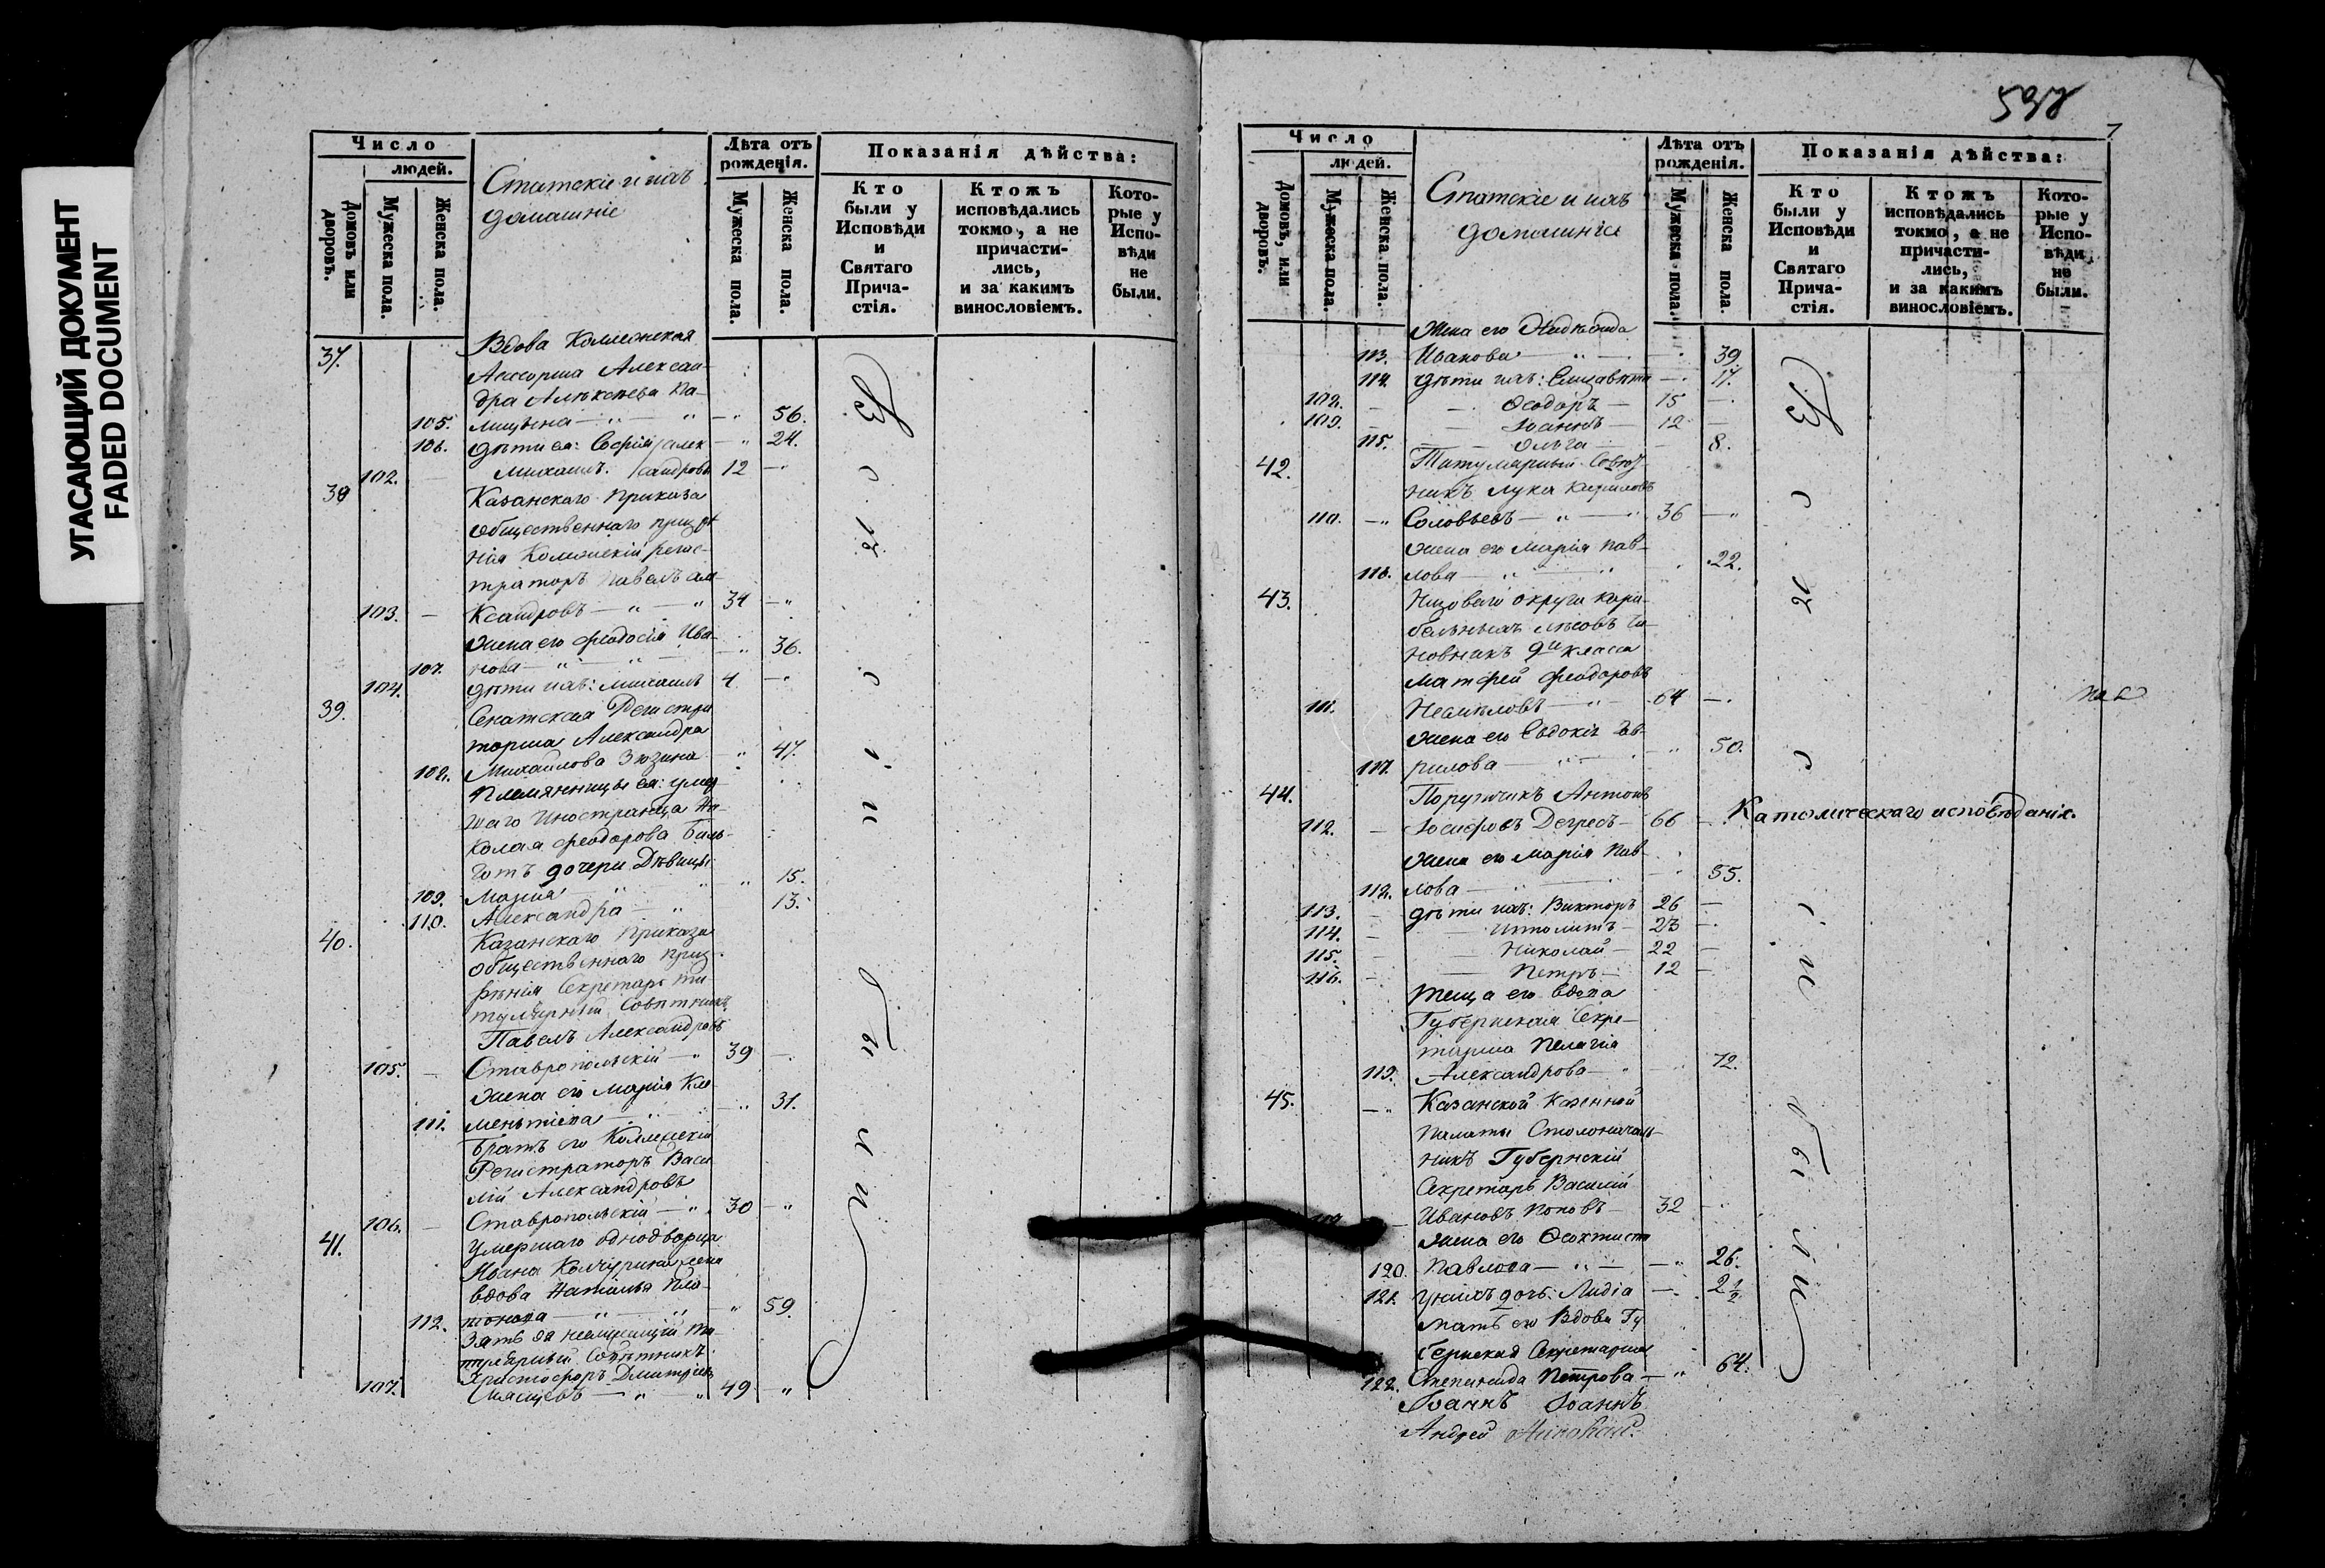 УГАСАЮЩИЙ ДОКУМЕНТ
FADED DOCUMENT
Число
людей.
Домовъ или дворовъ.
Мужеска пола.
Женска пола.
Статскіе и ихъ
домашніе
Лѣта отъ рожденія.
Мужеска пола.
Женска пола.
Показанія дѣйства:
Кто были у Исповѣди и Святаго Прича- стія.
Ктожъ исповѣдались токмо, а не причасти- лись, и за какимъ винословіемъ.
Кото- рые у Испо- вѣди не были.
37. Вдова Коллежская
Ассесорша Алексан-
дра Алексѣева Па-
105. 56.
106. дѣти ея: Софія Алек 24.
102. Михаилъ. сандровы 12
38 Казанскаго Приказа
Общественнаго призрѣ
нія Колежскій регис-
траторъ Павелъ Але-
103. ксандровъ 34
Жена его Феодосія Ива-
107. нова 36.
104. дѣти ихъ: Михаилъ 4
39. Сенатская Регистра
торша Александра
108. Михайлова Зюзина 47.
Племянницы ея: умер
шаго Иностранца Ни-
колая Феодорова
дочери Дѣвицы:
109. Марія 15.
110. Александра 13.
40. Казанскаго Приказа
общественнаго приз-
рѣнія Секретарь ти
тулярный Совѣтникъ
Павелъ Александровъ
105. Ставропольскій 39
Жена его Марія Кле
111. ментіева 31.
Братъ его Коллежскій
Регистраторъ Васи
лій Александровъ
106. Ставропольскій 30
41. Умершаго однодворца
Ивана жена
вдова Наталья Пла-
112. тонова 59
Зять ея неслужащій ти-
тулярный Совѣтникъ
Христофоръ Дмитріевъ
107. 49
Всѣ были
Число
людей.
Домовъ, или дворовъ.
Мужеска пола.
Женска пола.
Статскіе и ихъ
домашніе
Лѣта отъ рожденія.
Мужеска пола.
Женска пола.
Показанія дѣйства:
Кто были у Исповѣди и Святаго Прича- стія.
Ктожъ исповѣдались токмо, а не причасти- лись, и за какимъ винословіемъ.
Кото- рые у Испо- вѣди не были.
Жена его Надежда
113. Иванова 39.
114. дѣти ихъ: Елизавета 17.
108. Ѳеодоръ 15
109. Іоаннъ 12
115. Ольга 8.
42. Титулярный Совѣт-
никъ Лука Кириловъ
110. Соловьевъ 36
Жена его Марія Пав-
116. лова 22.
43. Низоваго округа кора-
бельныхъ лѣсовъ Чи-
новникъ 9го класса
Матфей Феодоровъ
111. Несмѣловъ 64
Жена его Евдокія Гав-
117. рилова 50.
44. Поручикъ Антонъ
112. Іосифовъ Дегресъ 66 Католическаго исповѣданія.
Жена его Марія Пав-
118. лова 55.
113. дѣти ихъ: Викторъ 26
114. Ипполитъ 23
115. Николай 22
116. Петръ 12
теща его вдова
Губернская Секре-
тарша Пелагія
119. Александрова 72.
45. Казанской Казенной
Палаты Столоначаль-
никъ Губернскій
Секретарь Василій
Ивановъ Поповъ 32
Жена его Ѳеоктиста
120. Павлова 26.
121. у нихъ дочь: Лидія 2 1/2
Мать его Вдова Гу
бернская Секретарша
122. Степанида Петрова 64.
Іоаннъ Іоаннъ
Андрей Николай.
Всѣ были